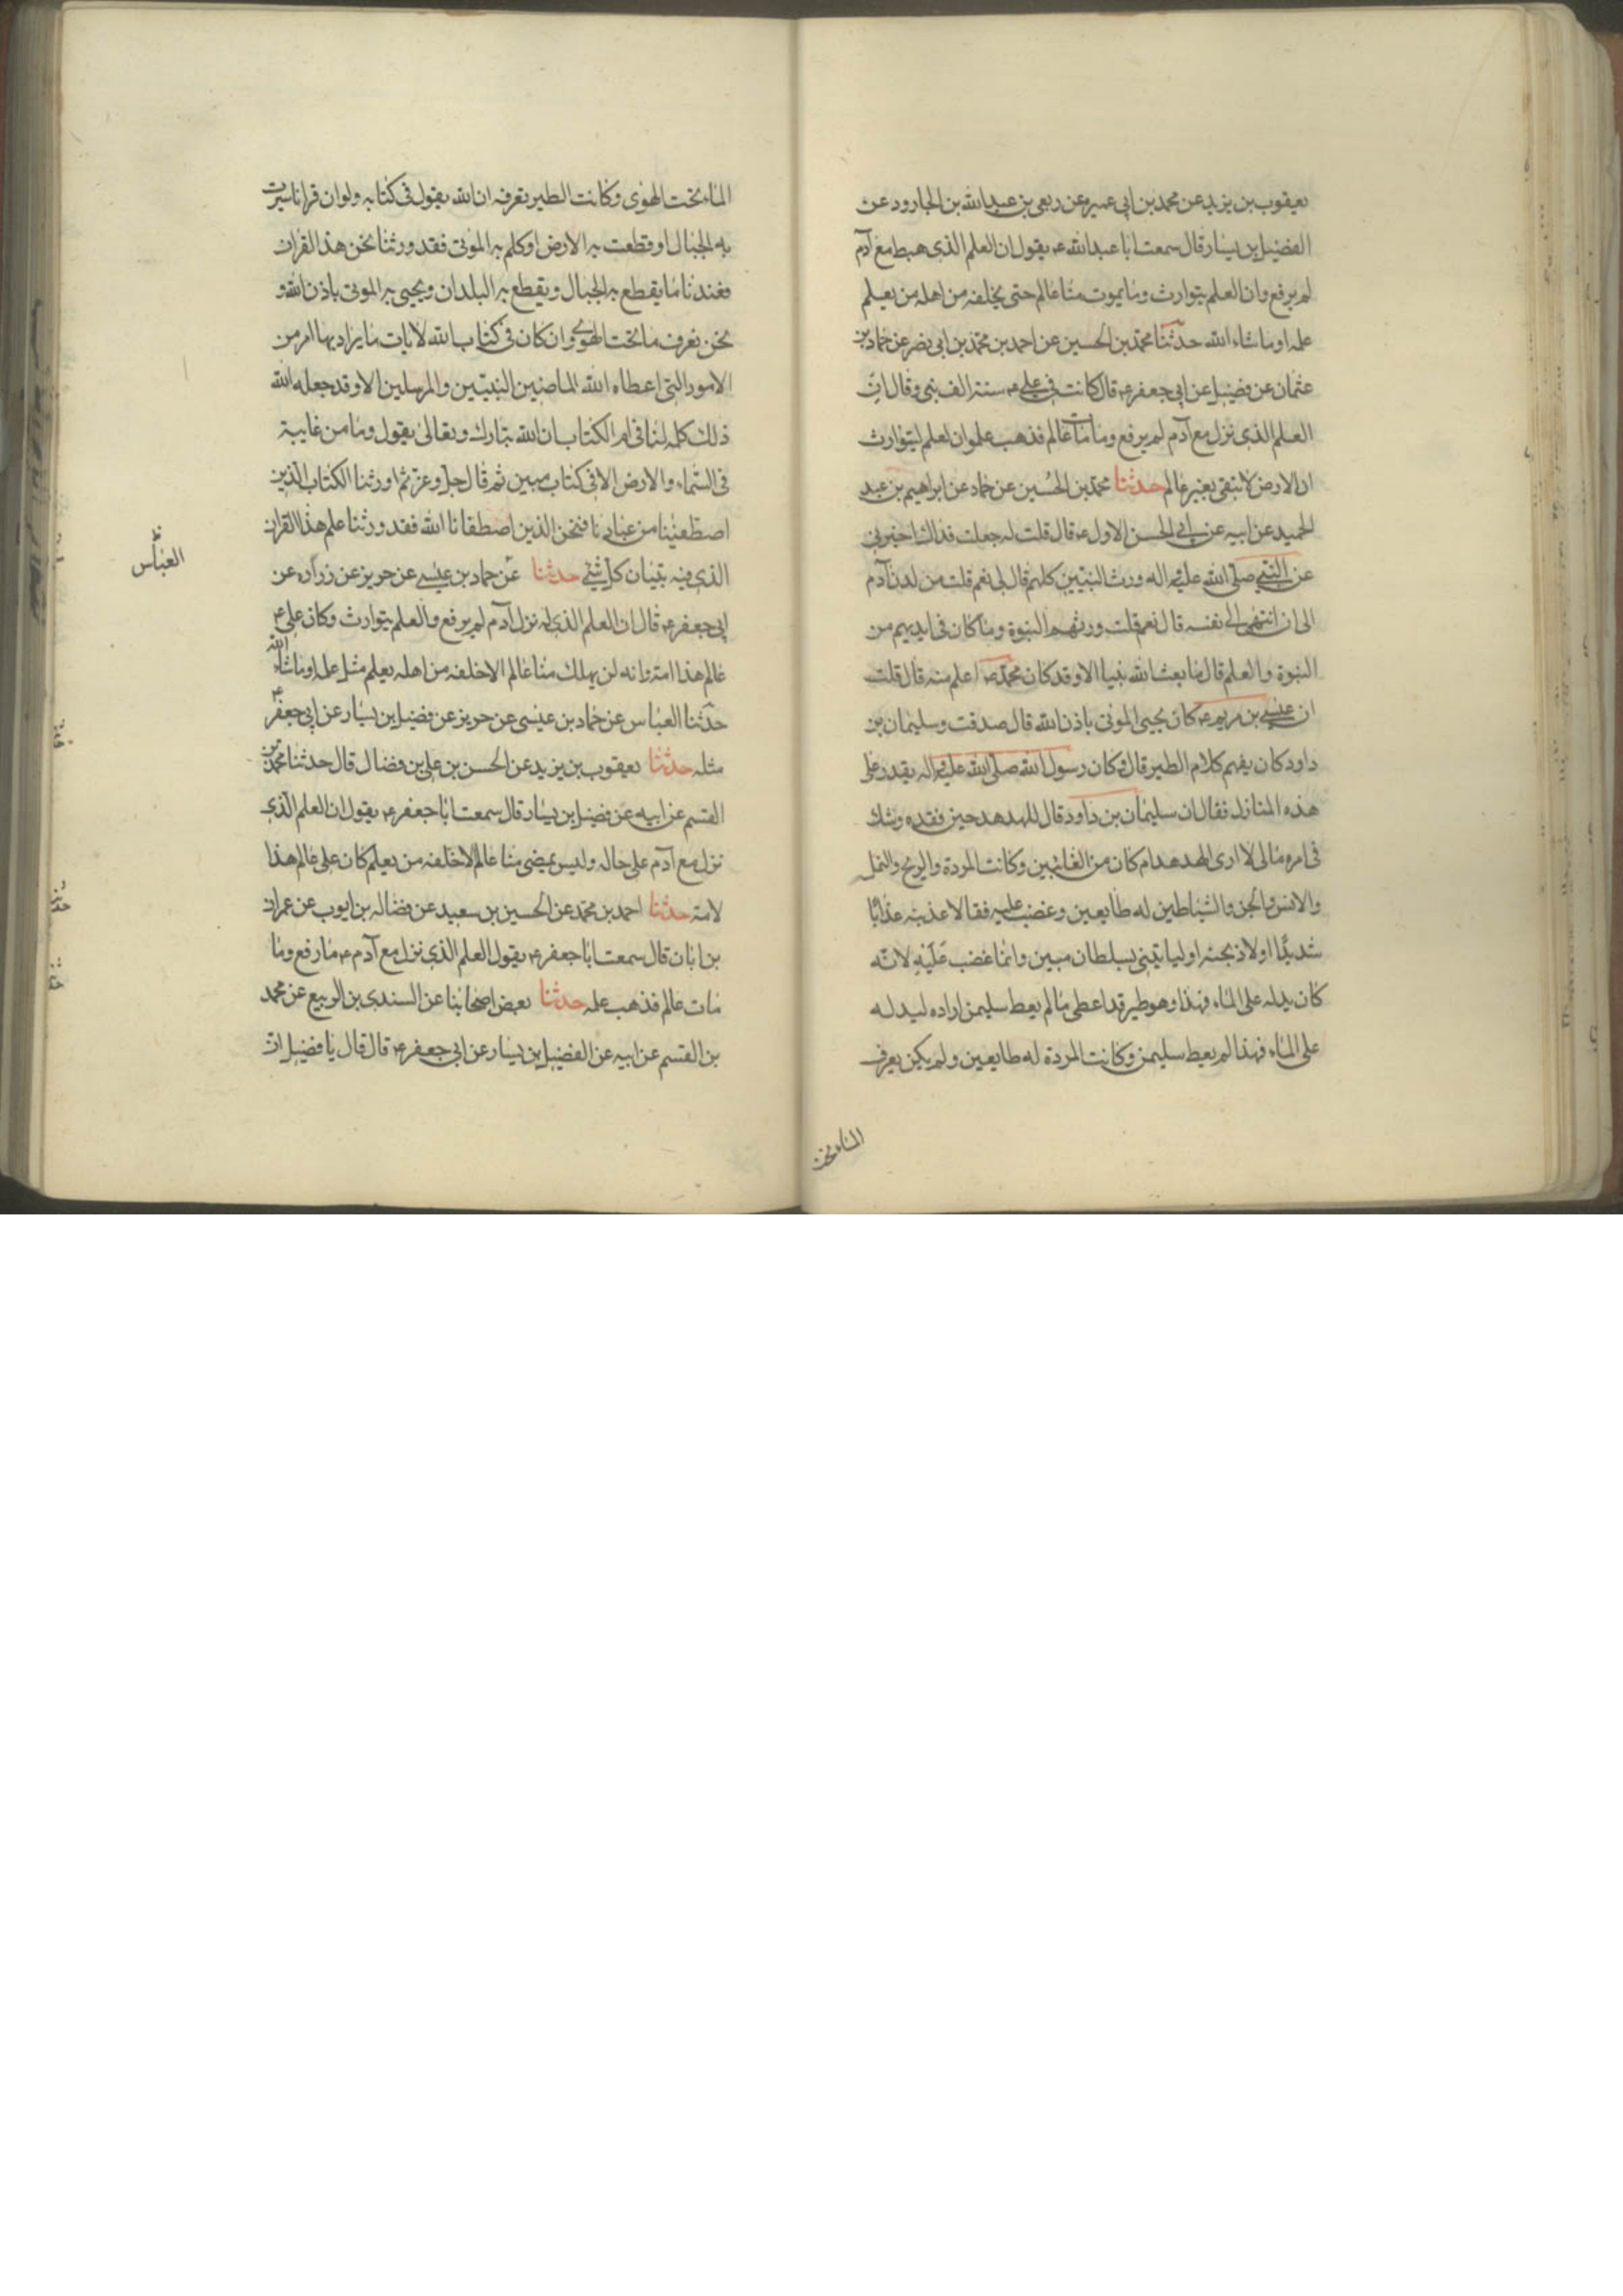 يعقوب بن يزيد عن محمد بن ابى عمير وعن ربعى بن عبد الله بن الجارود عن
الفضيل بن يسار قال سمعت ابا عبد الله ع يقول ان العلم الذى هبط مع آدم
لم يرفع وان العلم يتوارث وما يموت منا عالم حتى يخلفه من اهله من يعلم
علمه او ما شاء الله حدثنا محمد بن الحسين عن احمد بن محمد بن ابى نصر عن حماد بن
عثمان عن فضيل عن ابى جعفر ع قال كانت فى على ع سنة الف نبى وقال ان
العلم الذى نزل مع آدم لم يرفع وما مات عالم فذهب علمه وان لعلم ليتوارث
ان الارض لا تبقى بغير عالم حدثنا محمد بن الحسين عن حماد عن ابراهيم بن عبد
الحميد عن ابيه عن ابى الحسن الاول ع قال قلت له جعلت فداك اخبرنى
عن النبى صلى الله عليه واله ورث النبيين كلهم قال لى نعم قلت من لدن آدم
الى ان انتهى الى نفسه قال نعم قلت ورثهم النبوة وما كان فى ايديهم من
النبوة والعلم قال ما بعث الله نبيا الا وقد كان محمد ع اعلم منه قال قلت
ان عيسى بن مريم ع كان يحيى الموتى باذن الله قال صدقت وسليمان بن
داود كان يفهم كلام الطير قال وكان رسول الله صلى الله عليه واله يقدر على
هذه المنازل فقال ان سليمان بن داود قال للهدهد حين فقده وشك
فى امره مالى لا ارى الهدهد ام كان من الغائبين وكانت المردة والريح والنمل
والانس والجن والشياطين له طايعين وغضب عليه فقا لاعذبنه عذابا
شديدا اولاذبحنه او لياتينى بسلطان مبين وانما غضب عليه لانه
كان يدله على الماء فهذا وهو طير قد اعطى ما لم يعط سليمن اراده ليدله
على الماء فهذا لم يعط سليمن وكانت المردة له طايعين ولم يكن يعرف
الماء تحت
الماء تحت الهوى وكانت الطير تعرفه ان الله يقول فى كتابه ولو ان قرانا سيرت
به الجبال او قطعت به الارض او كلم به الموتى فقد ورثنا نحن هذا القران
فعندنا ما يقطع به الجبال ويقطع به البلدان ويحيى به الموتى باذن الله و
نحن نعرف ما تحت الهوى وان كان فى كتاب الله لايات ما يراد بها امر من
الامور التى اعطاه الله الماضين النبيين والمرسلين الا وقد جعله الله
ذلك كله لنا فى ام الكتاب ان الله تبارك وتعالى يقول وما من غايبة
فى السماء والارض الا فى كتاب مبين ثم قال جل وعز ثم اورثنا الكتاب الذين
اصطفينا من عبادنا فنحن الذين اصطفانا الله فقد ورثنا علم هذا القران
الذى فيه تبيان كل شئ حدثنا عن حماد بن عيسى عن حريز عن زراره عن
العباس
ابى جعفر ع قال ان العلم الذى له نزل آدم لم يرفع والعلم يتوارث وكان على ع
عالم هذا امة وانه لن يهلك منا عالم الا خلفه من اهله يعلم مثل علمه او ما شاء الله
حدثنا العباس عن حماد بن عيسى عن حريز عن فضيل بن يسار عن ابى جعفر ع
مثله حدثنا يعقوب بن يزيد عن الحسن بن على بن فضال قال حدثنا محمد بن
القسم عن ابيه عن فضيل بن يسار قال سمعت ابا جعفر ع يقول ان العلم الذى
نزل مع آدم على حاله وليس يمضى منا عالم الا خلفه من يعلم كان على عالم هذا
لامة حدثنا احمد بن محمد عن الحسين بن سعيد عن فضاله بن ايوب عن عمران
بن ابان قال سمعت ابا جعفر ع يقول العلم الذى نزل مع آدم ع ما رفع وما
مات عالم فذهب علمه حدثنا بعض اصحابنا عن السندى بن الربيع عن محمد
بن القسم عن ابيه عن الفضيل بن يسار عن ابى جعفر ع قال قال يا فضيل ان